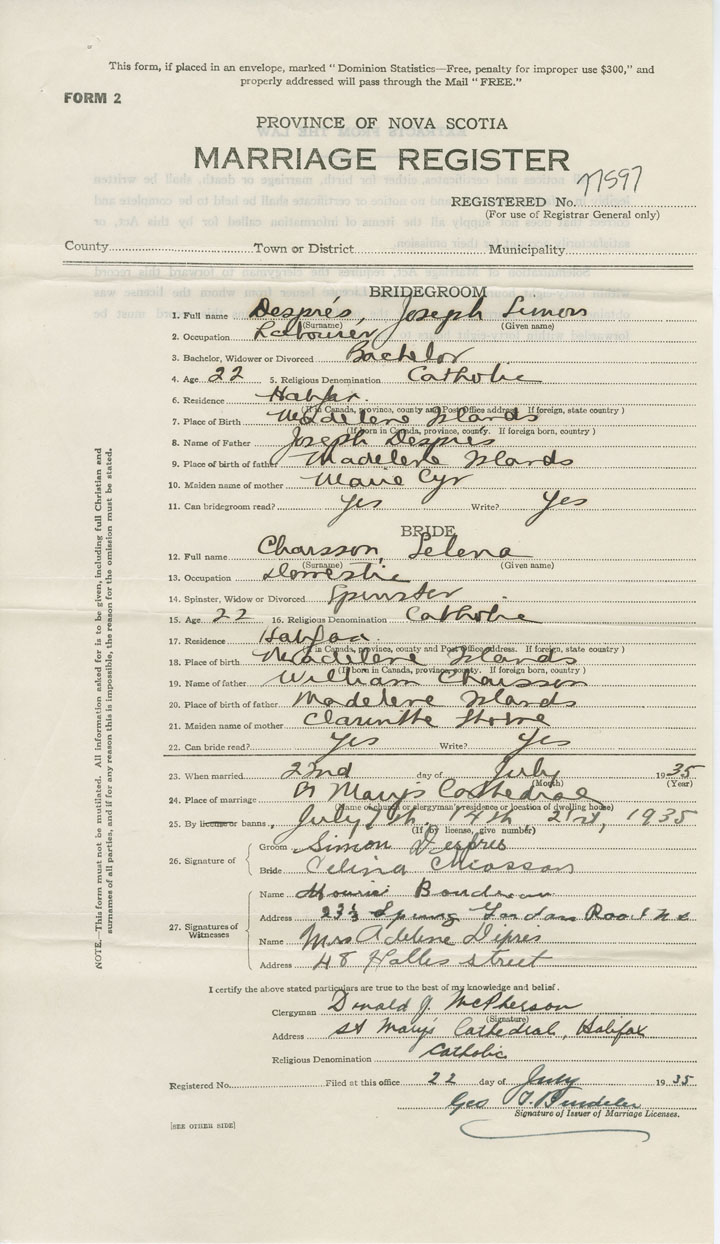 This form, if placed in an envelope, marked "Dominion Statistics—Free, penalty for improper use $300," and
properly addressed will pass through the Mail "FREE."
FORM 2
PROVINCE OF NOVA SCOTIA
MARRIAGE REGISTER
REGISTERED No. 77597
(For use of Registrar General only)
County Town or District Municipality
BRIDEGROOM
1. Full name Després, Joseph Simon
(Surname) (Given name)
2. Occupation Labourer
3. Bachelor, Widower or Divorced Bachelor
4. Age 22 5. Religious Denomination Catholic
6. Residence Halifax.
(If in Canada, province, county and Post Office address. If foreign, state country)
7. Place of Birth Madelene Islands
(If born in Canada, province, county. If foreign born, country)
8. Name of Father Joseph Després
9. Place of birth of father Madelene Islands
10. Maiden name of mother Marie Cyr
11. Can bridegroom read? Yes Write? Yes
BRIDE
12. Full name Chaisson, Selena
(Surname) (Given name)
13. Occupation Domestic
14. Spinster, Widow or Divorced Spinster
15. Age 22 16. Religious Denomination Catholic
17. Residence Halifax.
(If in Canada, province, county and Post Office address. If foreign, state country)
18. Place of birth Madelene Islands
(If born in Canada, province, county. If foreign born, country)
19. Name of father William Chaisson
20. Place of birth of father Madelene Islands
21. Maiden name of mother Clarinthe
22. Can bride read? Yes Write? Yes
23. When married 22nd day of July 1935
(Month) (Year)
24. Place of marriage St Mary's Cathedral
(Name of church or clergyman's residence or location of dwelling house)
25. By license or banns, July 7th, 14th 21st, 1935
(If by license, give number)
26. Signature of Groom Simon Despres
Bride Celina Chiasson
27. Signatures of Witnesses
Name Boudreau
Address 23½ Spring Garden Road N S
Name Mrs Adelene Dipres
Address 48 Hallis street
I certify the above stated particulars are true to the best of my knowledge and belief.
Clergyman Donald J. McPherson
(Signature)
Address St Mary's Cathedral, Halifax
Religious Denomination Catholic
Registered No. Filed at this office 22 day of July 1935
Geo
Signature of Issuer of Marriage Licenses.
[SEE OTHER SIDE]
NOTE.—This form must not be mutilated. All information asked for is to be given, including full Christian and
surnames of all parties, and if for any reason this is impossible, the reason for the omission must be stated.